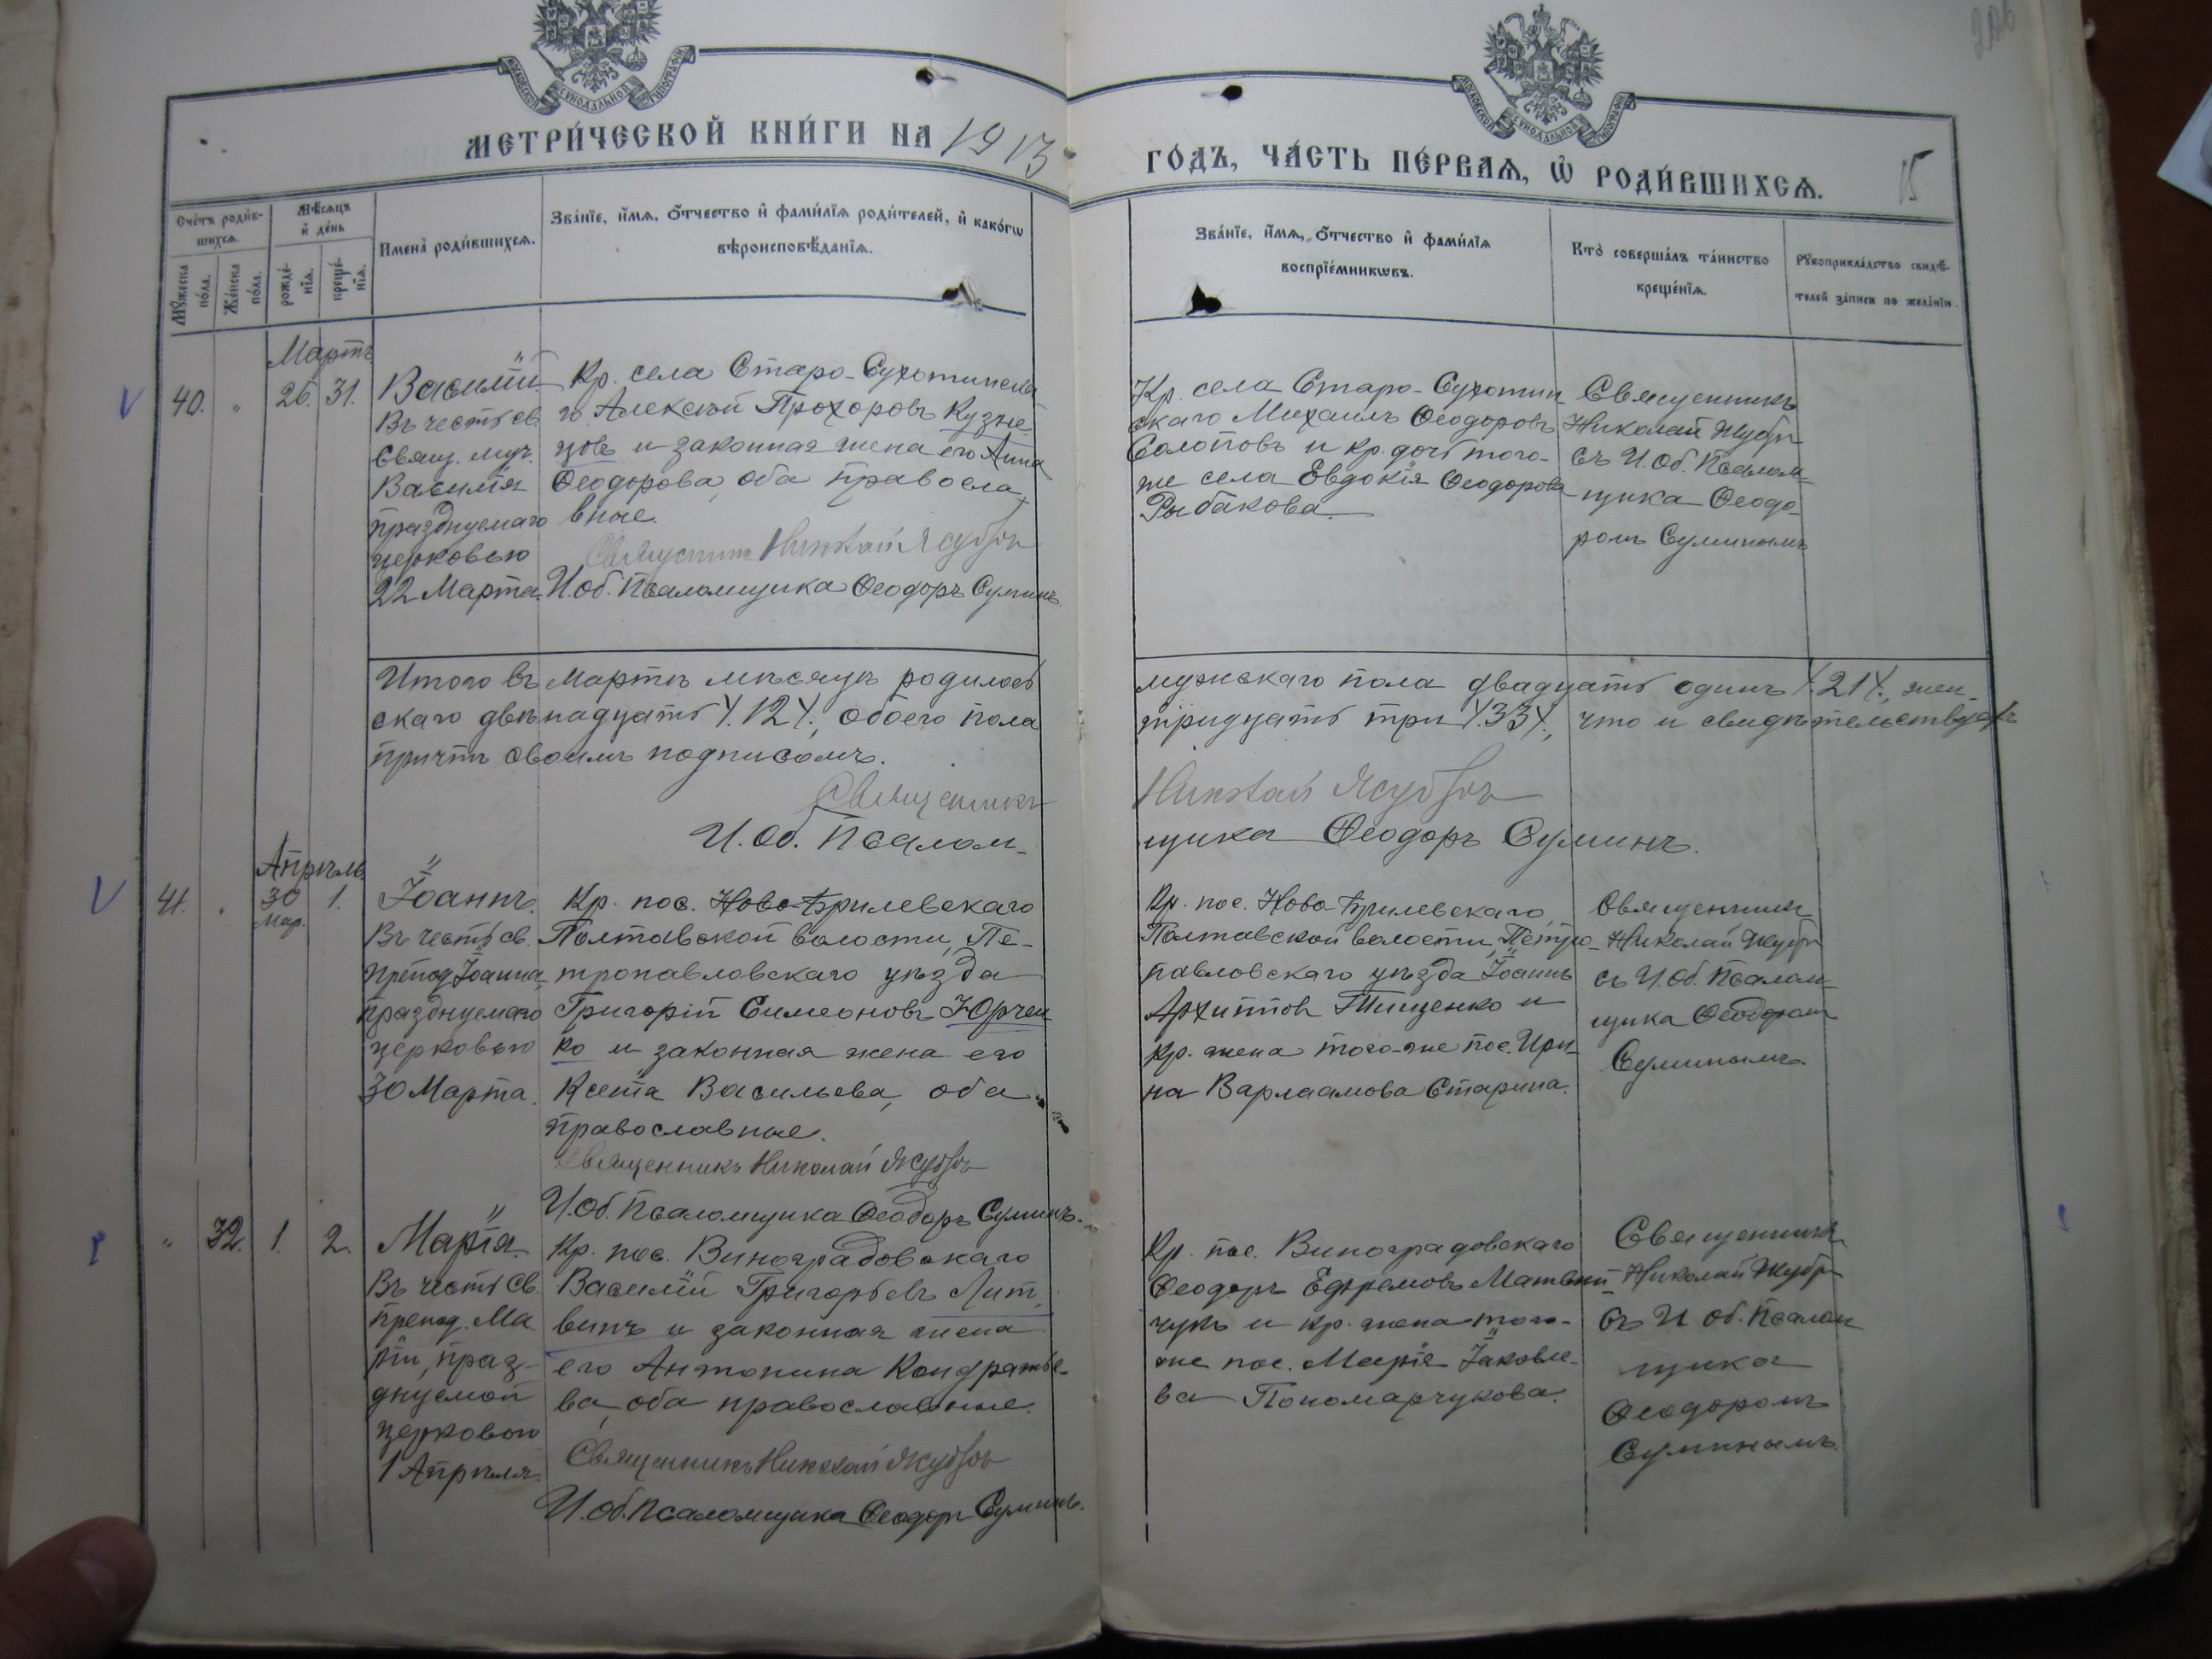 206
МОСКОВСКОЙ СУНОДАЛЬНОЙ ТИПОГРАФІИ
МОСКОВСКОЙ СУНОДАЛЬНОЙ ТИПОГРАФІИ
МЕТРИ́ЧЕСКОЙ КНИ́ГИ НА 1913
ГО́ДЪ, ЧА́СТЬ ПЕ́РВАЯ, Ѽ РОДИ́ВШИХСЯ.
15
Сче́тъ роди́в-
шихся.
Мꙋ́жеска по́ла.
Же́нска по́ла.
Мѣ́сяцъ
и де́нь
рожде́-
нїя.
креще́-
нїя.
Имена̀ роди́вшихся.
Зва́нїе, и́мя, о́тчество и фами́лїя роди́телей, и како́гѡ
вѣроисповѣ́данїя.
Зва́нїе, и́мя, о́тчество и фами́лїя
воспрїе́мникѡвъ.
Кто̀ соверша́лъ та́инство
креще́нїя.
Рꙋкоприкла́дство свидѣ́-
телей за́писи по жела́нїю.
Мартъ
40. " 26. 31.
Василій
Въ честь св.
Свящ. муч.
Василія
празднуемаго
церковью
22 Марта.
Кр. села Старо-Сухотинска
го Алексѣй Прохоровъ Кузне
цовъ и законная жена его Анна
Ѳеодорова, оба правосла
вные.
Священникъ Николай
И. об. Псаломщика Ѳеодоръ Суминъ.
Кр. села Старо-Сухотин
скаго Михаилъ Ѳеодоровъ
Солоповъ и кр. дочь того-
же села Евдокія Ѳеодорова
Рыбакова.
Священникъ
Николай
съ И. Об. Псалом-
щика Ѳеодо-
ромъ Суминымъ
Итого въ Мартѣ мѣсяцѣ родилось
мужскаго пола двадцать одинъ /.21/., жен-
скаго двѣнадцать /.12/., обоего пола
тридцать три /.33/., что и свидѣтельствуетъ
причтъ своимъ подписомъ.
Священникъ
Николай
И. Об. Псалом-
щика Ѳеодоръ Суминъ.
Апрѣль
41. " 30 1.
Мар.
Іоаннъ.
Въ честь св.
препод. Іоанна,
празднуемаго
церковью
30 Марта.
Кр. пос. Ново-Брилевскаго
Полтавской волости, Пе-
тропавловскаго уѣзда
Григорій Симеоновъ Юрчен
ко и законная жена его
Ксенія Васильева, оба
православные.
Священникъ Николай
И. Об. Псаломщика Ѳеодоръ Суминъ.
Кр. пос. Ново-Брилевскаго,
Полтавской волости, Петро-
павловскаго уѣзда Іоаннъ
Архиповъ Тищенко и
кр. жена того-же пос. Ири-
на Варлаамова Старина.
Священникъ
Николай
съ И. Об. Псалом-
щика Ѳеодоромъ
Суминымъ.
" 32. 1. 2.
Марія.
Въ честь Св.
препод. Ма
ріи, праз-
днуемой
церковью
1 Апрѣля.
Кр. пос. Виноградовскаго
Василій Григорьевъ Лит
винъ и законная жена
его Антонина Кондратье-
ва, оба православные.
Священникъ Николай
И. Об. Псаломщика Ѳеодоръ Суминъ.
Кр. пос. Виноградовскаго
Ѳеодоръ Ефремовъ Матвій-
чукъ и кр. жена того-
же пос. Марія Іаковле-
ва Пономарчукова.
Священникъ
Николай
съ И Об. Псалом
щика
Ѳеодоромъ
Суминымъ.